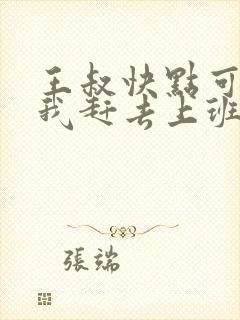 王叔快點可
我赶去上班
張端